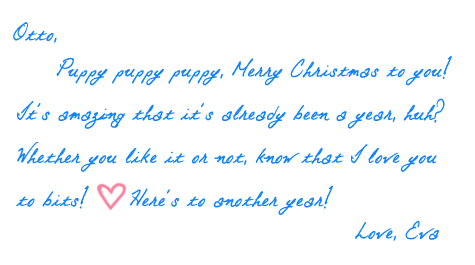 Otto,
Puppy puppy puppy, Merry Christmas to you!
It's amazing that it's already been a year, huh?
Whether you like it or not, know that I love you
to bits! Here's to another year!
Love, Eva